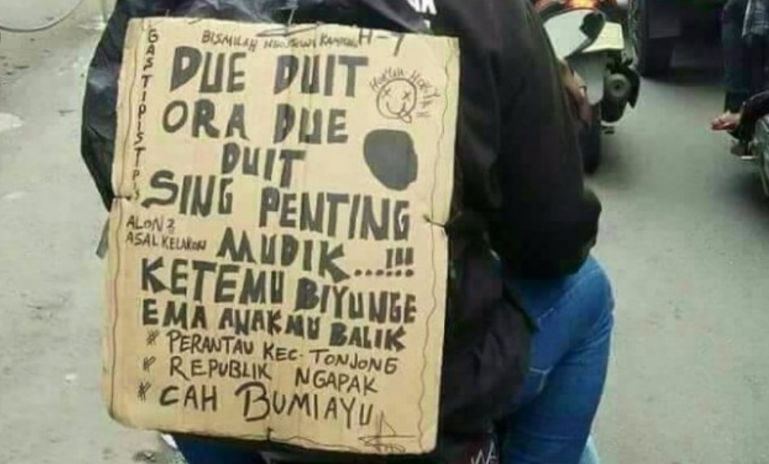 BISMILAH KAMPUNG H-7
DUE DUIT
ORA DUE
DUIT
SING PENTING
ALON2
ASAL KELAKON
MUDIK.....!!!
KETEMU BIYUNGE
EMA ANAKMU BALIK
* PERANTAU KEC. TONJONG
* REPUBLIK NGAPAK
* CAH BUMIAYU